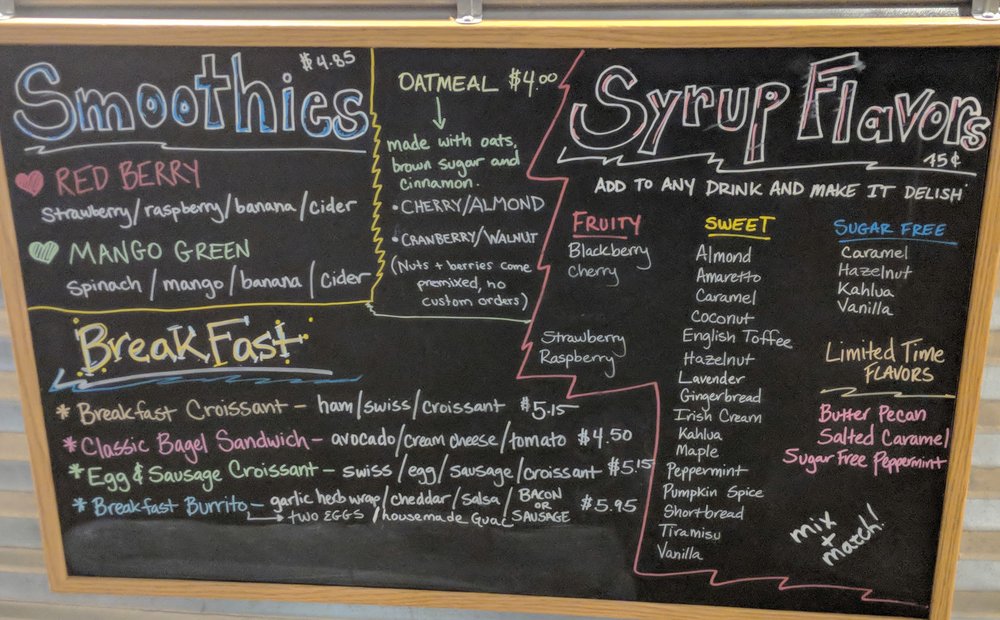 Smoothies $4.85
RED BERRY
Strawberry/raspberry/banana/cider
MANGO GREEN
Spinach/mango/banana/cider
OATMEAL $4.00
made with oats,
brown sugar and
cinnamon.
• CHERRY/ALMOND
• CRANBERRY/WALNUT
(Nuts + berries come
premixed, no
custom orders)
BreakFast
* Breakfast Croissant – ham/swiss/croissant $5.15
* Classic Bagel Sandwich – avocado/cream cheese/tomato $4.50
* Egg & Sausage Croissant – swiss/egg/sausage/croissant $5.15
* Breakfast Burrito – garlic herb wrap/cheddar/salsa/BACON OR SAUSAGE $5.95
TWO EGGS/housemade Guac
Syrup Flavors
45¢
ADD TO ANY DRINK AND MAKE IT DELISH
FRUITY
Blackberry
Cherry
Strawberry
Raspberry
SWEET
Almond
Amaretto
Caramel
Coconut
English Toffee
Hazelnut
Lavender
Gingerbread
Irish Cream
Kahlua
Maple
Peppermint
Pumpkin Spice
Shortbread
Tiramisu
Vanilla
SUGAR FREE
Caramel
Hazelnut
Kahlua
Vanilla
Limited Time
FLAVORS
Butter Pecan
Salted Caramel
Sugar Free Peppermint
mix
+
match!